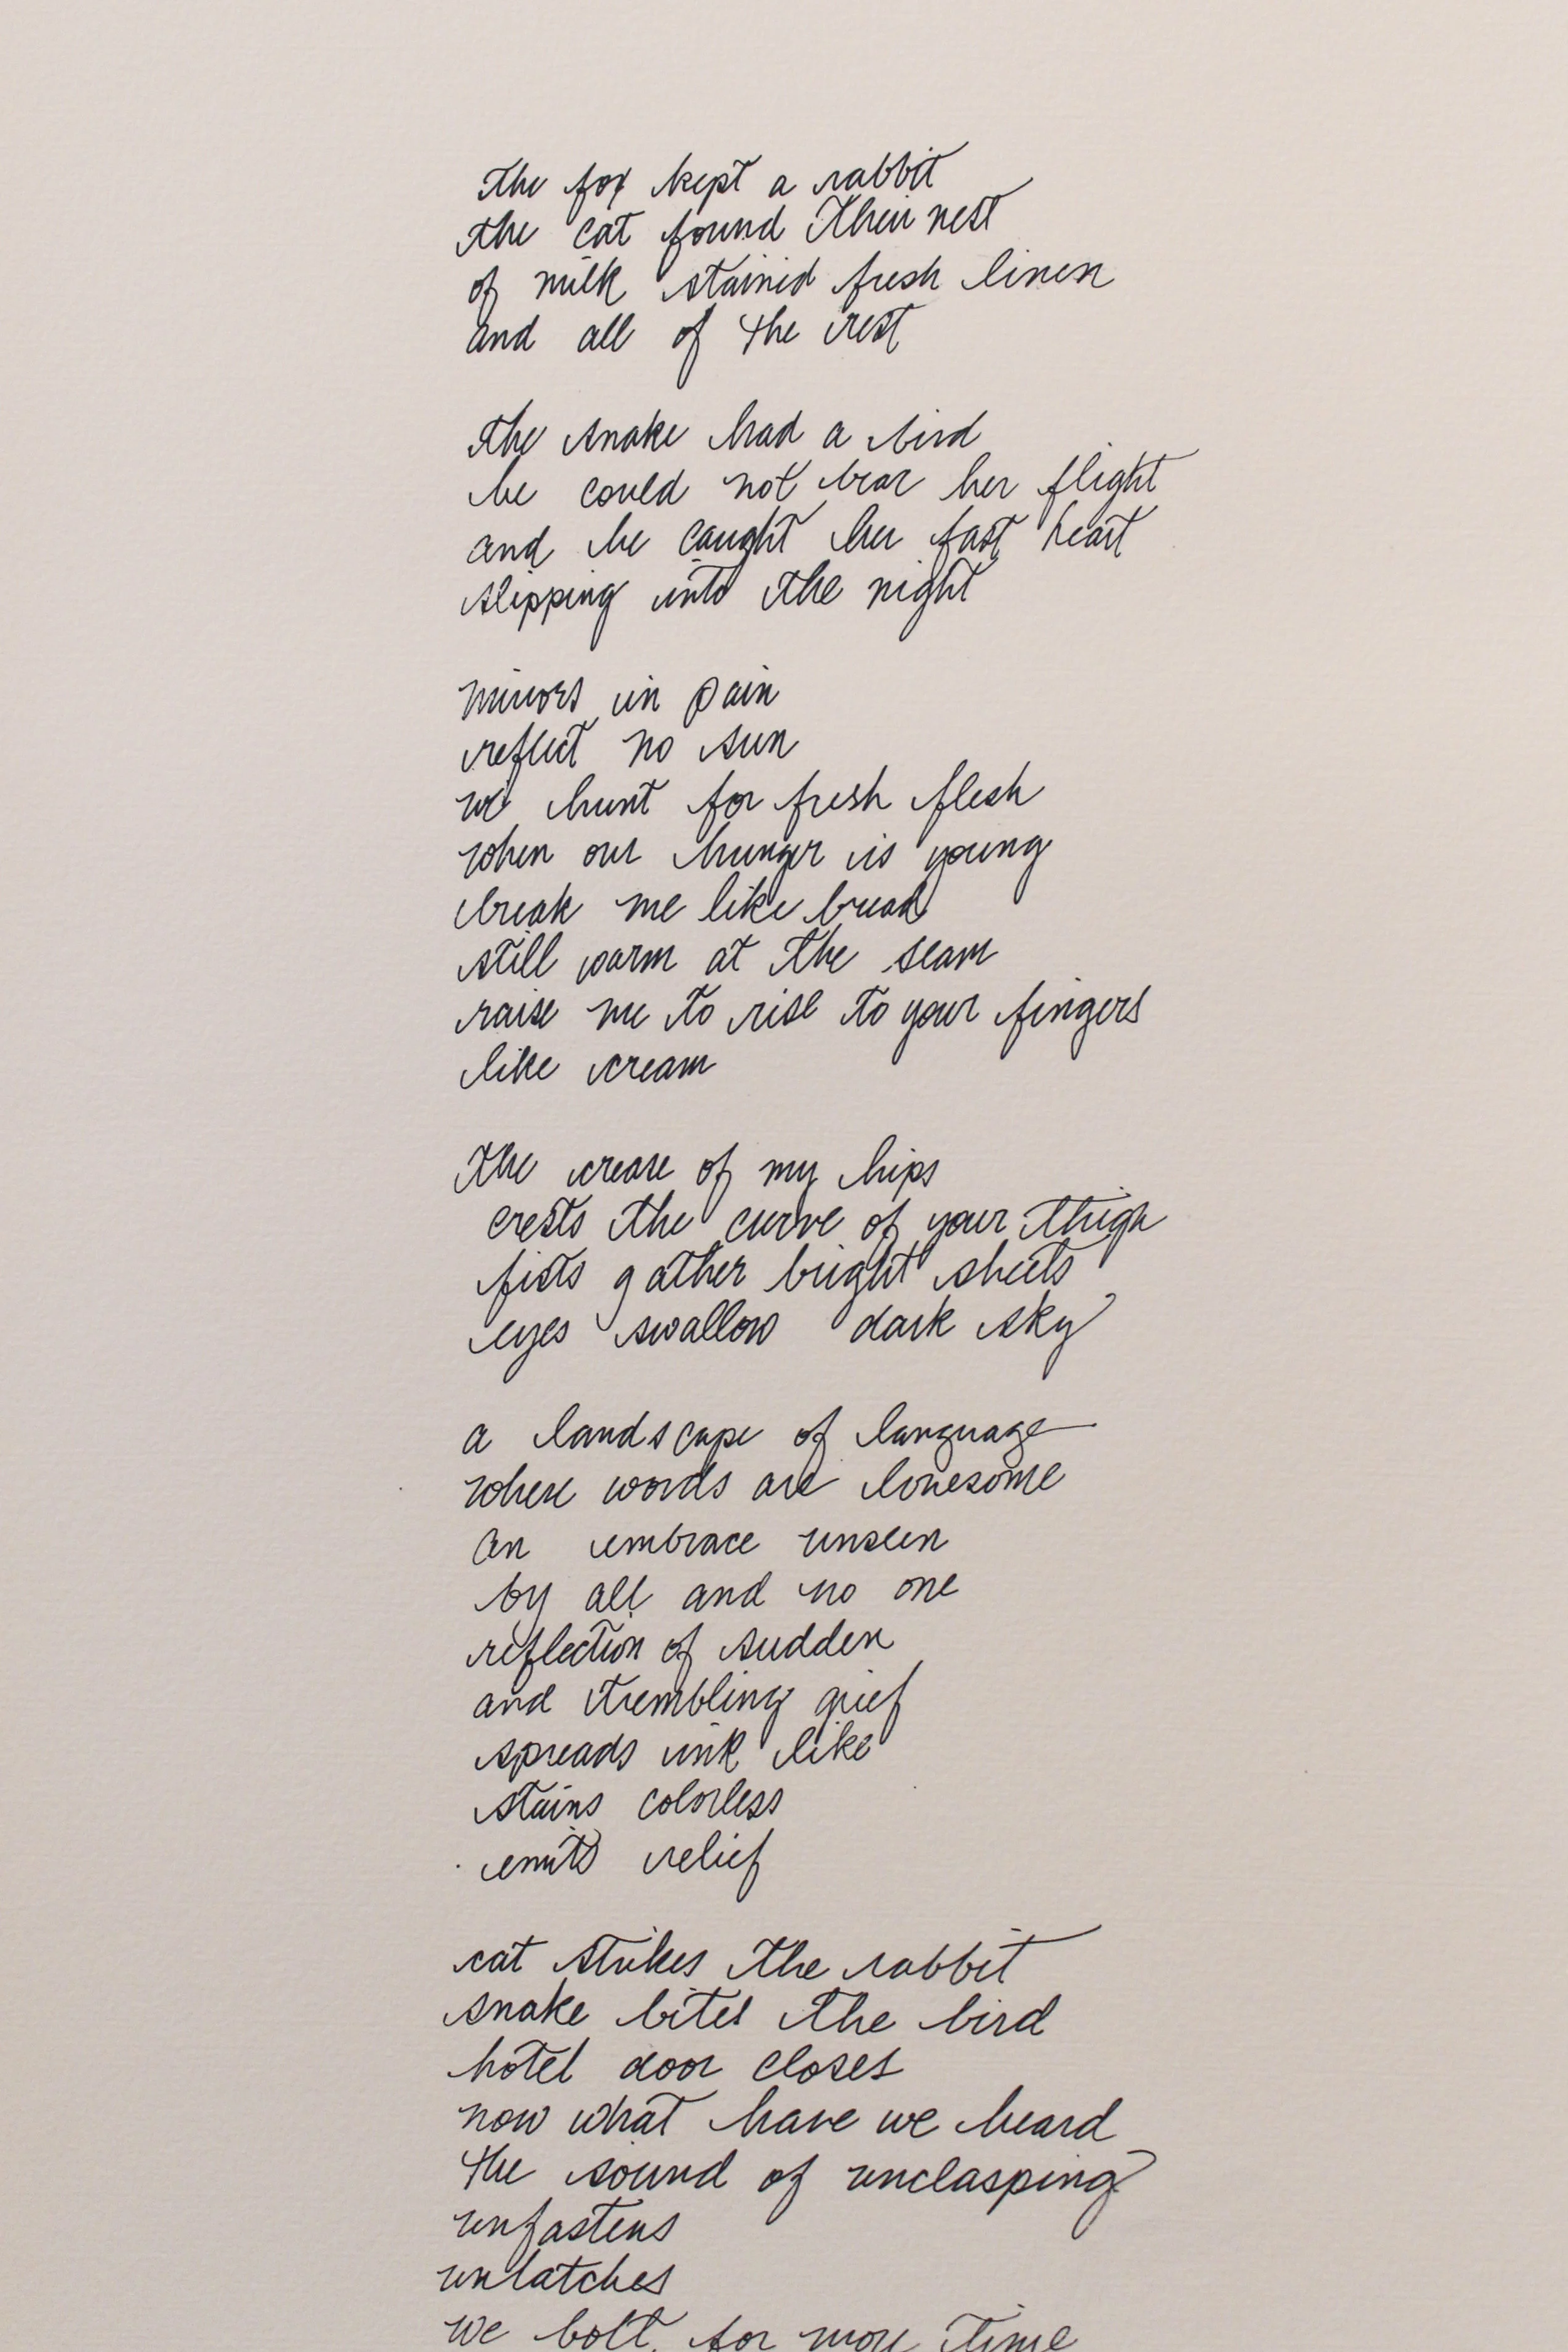 the fox kept a rabbit
the cat found their nest
of milk stained fresh linen
and all of the rest
the snake had a bird
he could not bear her flight
and he caught her fast heart
slipping into the night
mirrors in pain
reflect no sun
we hunt for fresh flesh
when our hunger is young
break me like bread
still warm at the seam
raise me to rise to your fingers
like cream
the crease of my hips
crests the curve of your thigh
fists gather bright sheets
eyes swallow dark sky
a landscape of language
where words are lonesome
an embrace unseen
by all and no one
reflection of sudden
and trembling grief
spreads ink like
stains colorless
emits relief
cat strikes the rabbit
snake bites the bird
hotel door closes
now what have we heard
the sound of unclasping
unfastens
unlatches
we bolt for more time